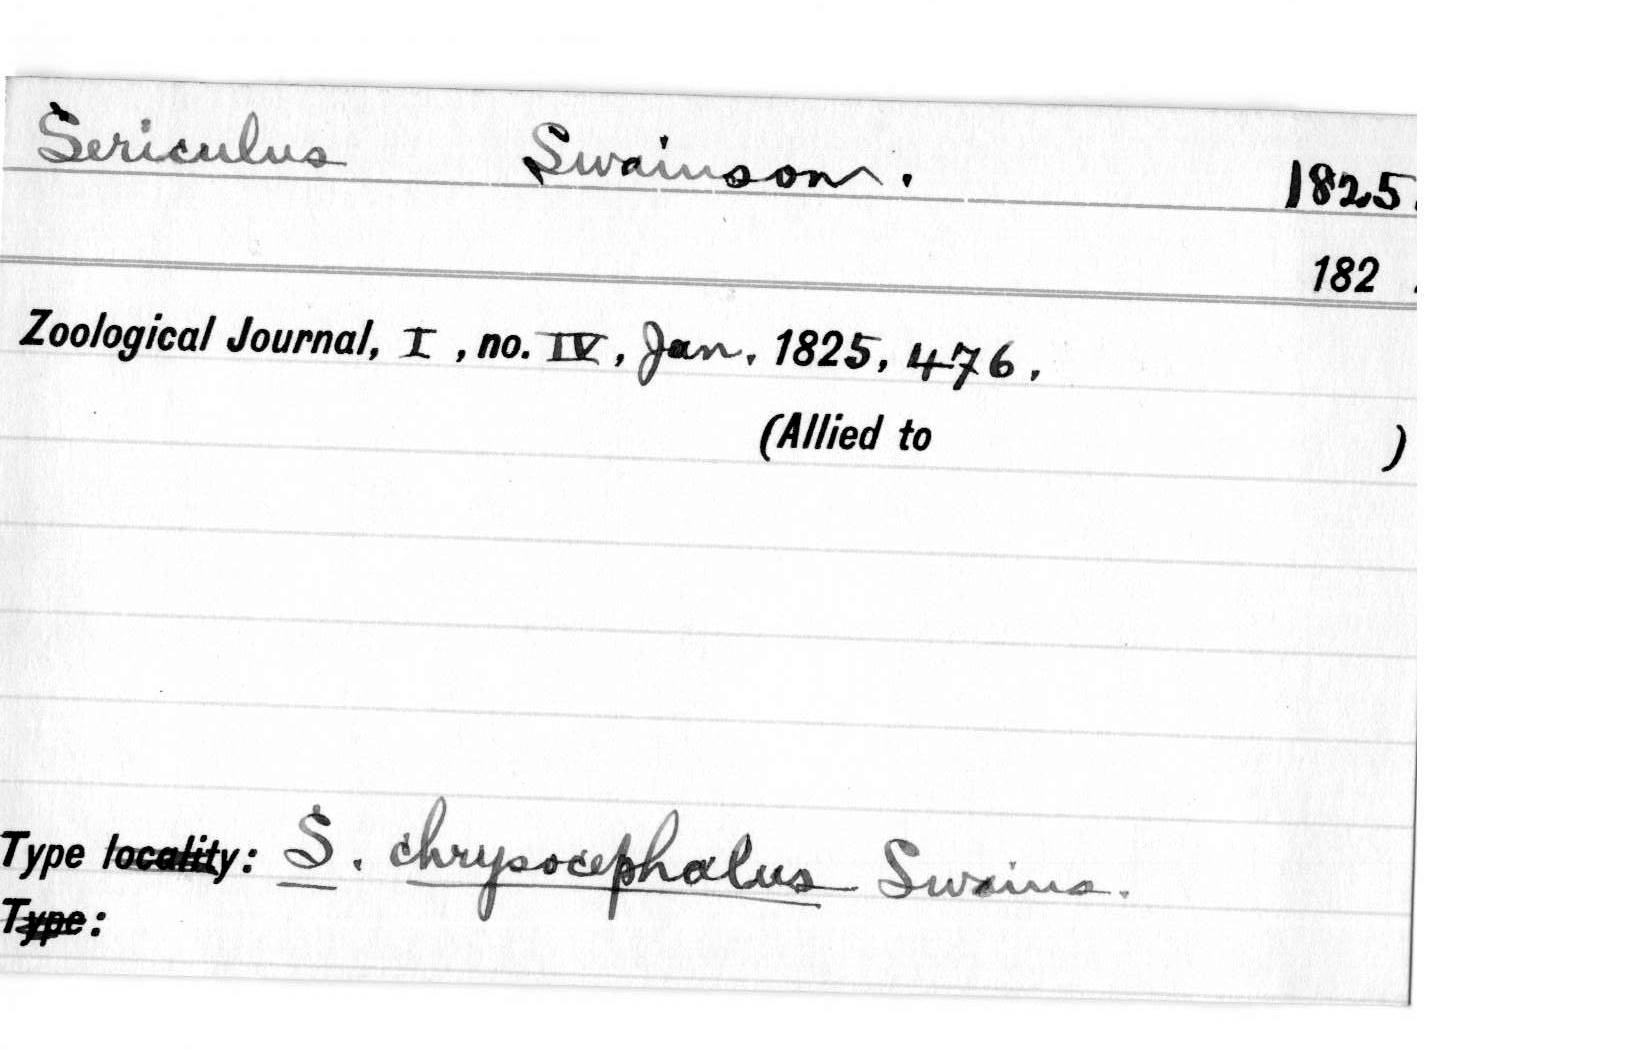 Sericulus Swainson. 1825.
182 .
Zoological Journal, I, no. IV, Jan. 1825, 476.
(Allied to )
Type locality: S. chrysocephalus Swains.
Type: